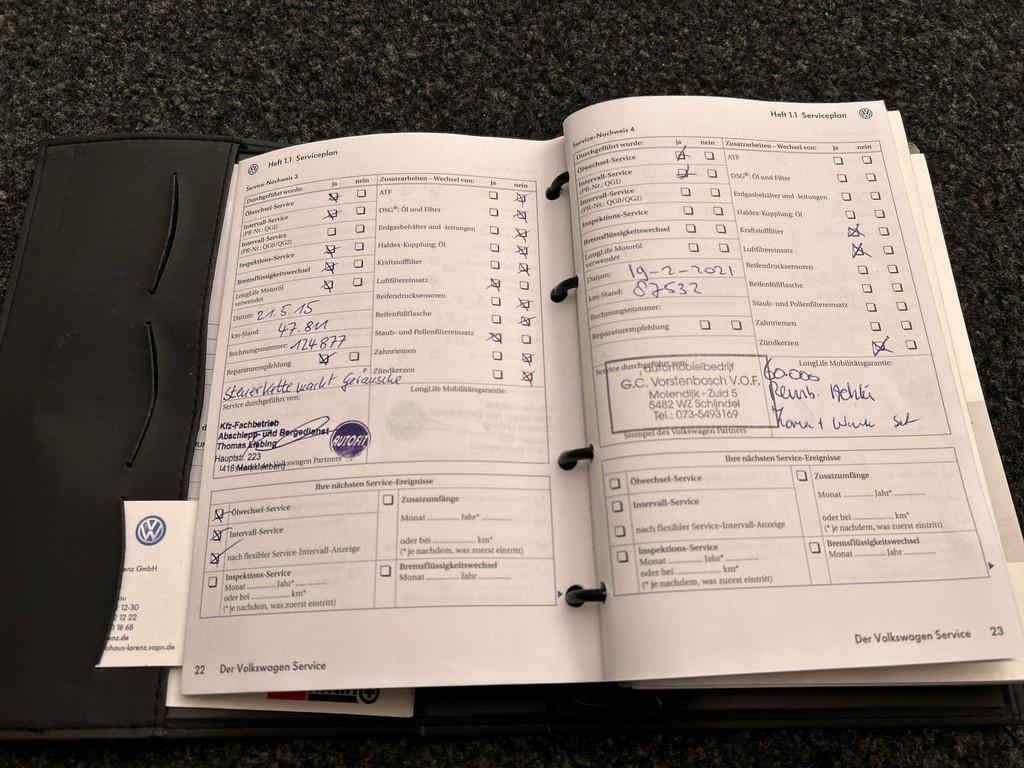 Heft 1.1 Serviceplan
Service-Nachweis 3
Durchgeführt wurde: ja nein
Ölwechsel-Service
Intervall-Service
(PR-Nr.: QG1)
Intervall-Service
(PR-Nr.: QG0/QG2)
Inspektions-Service
Bremsflüssigkeitswechsel
LongLife Motoröl
verwendet
Datum: 21.5.15
km-Stand: 47.811
Rechnungsnummer: 124877
Reparaturempfehlung
Steuerkette macht Geräusche
Service durchgeführt von:
Kfz-Fachbetrieb
Abschlepp- und Bergedienst
Thomas Liebing
Hauptstr. 223
Markkleeberg
Volkswagen Partners
AUTOFIT
Zusatzarbeiten – Wechsel von: ja nein
ATF
DSG®: Öl und Filter
Erdgasbehälter und -leitungen
Haldex-Kupplung: Öl
Kraftstofffilter
Luftfiltereinsatz
Reifendrucksensoren
Reifenfüllflasche
Staub- und Pollenfiltereinsatz
Zahnriemen
Zündkerzen
LongLife Mobilitätsgarantie:
Ihre nächsten Service-Ereignisse
Ölwechsel-Service
Intervall-Service
nach flexibler Service-Intervall-Anzeige
Inspektions-Service
Monat Jahr*
oder bei km*
(* je nachdem, was zuerst eintritt)
Zusatzumfänge
Monat Jahr*
oder bei km*
(* je nachdem, was zuerst eintritt)
Bremsflüssigkeitswechsel
Monat Jahr
22 Der Volkswagen Service
Heft 1.1 Serviceplan
Service-Nachweis 4
Durchgeführt wurde: ja nein
Ölwechsel-Service
Intervall-Service
(PR-Nr.: QG1)
Intervall-Service
(PR-Nr.: QG0/QG2)
Inspektions-Service
Bremsflüssigkeitswechsel
LongLife Motoröl
verwendet
Datum: 19-2-2021
km-Stand: 87532
Rechnungsnummer:
Reparaturempfehlung
Service durchgeführt von:
automobielbedrijf
G.C. Vorstenbosch V.O.F.
Molendijk - Zuid 5
5482 WZ Schijndel
Tel.: 073-5493169
Stempel des Volkswagen Partners
Zusatzarbeiten – Wechsel von: ja nein
ATF
DSG®: Öl und Filter
Erdgasbehälter und -leitungen
Haldex-Kupplung: Öl
Kraftstofffilter
Luftfiltereinsatz
Reifendrucksensoren
Reifenfüllflasche
Staub- und Pollenfiltereinsatz
Zahnriemen
Zündkerzen
LongLife Mobilitätsgarantie:
60.000
Remb. Achter
set
Ihre nächsten Service-Ereignisse
Ölwechsel-Service
Intervall-Service
nach flexibler Service-Intervall-Anzeige
Inspektions-Service
Monat Jahr*
oder bei km*
(* je nachdem, was zuerst eintritt)
Zusatzumfänge
Monat Jahr*
oder bei km*
(* je nachdem, was zuerst eintritt)
Bremsflüssigkeitswechsel
Monat Jahr
Der Volkswagen Service 23
enz GmbH
2 12-30
2 12 22
1 18 68
enz.de
ohaus-lorenz.vapn.de